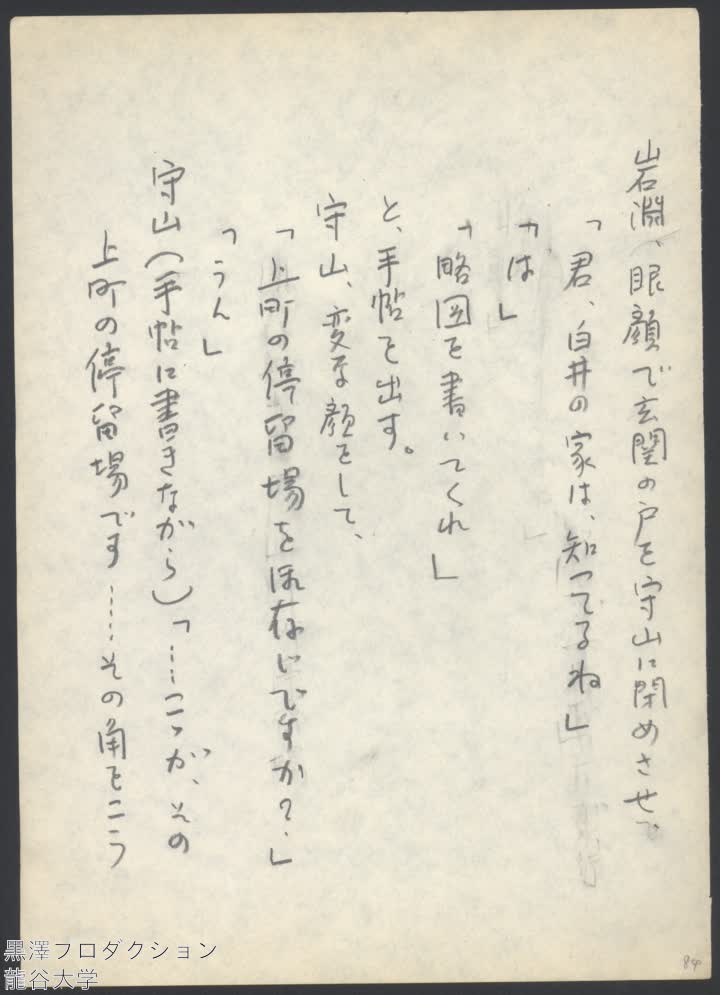 岩淵、眼顔で玄関の戸を守山に閉めさせて、
「君、白井の家は、知ってるね」
「は」
「略図を書いてくれ」
と、手帖を出す。
守山、変な顔をして、
「上町の停留場を御存じですか?」
「うん」
守山（手帖に書きながら）「…こゝが、その
上町の停留場です……その角をこう
84
黒澤プロダクション
龍谷大学